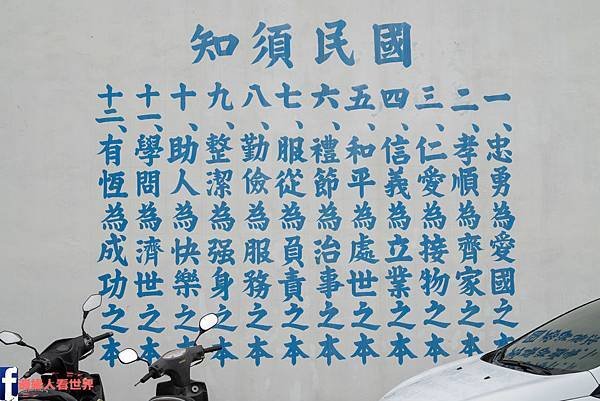 國民須知
一、忠勇為愛國之本
二、孝順為齊家之本
三、仁愛為接物之本
四、信義為立業之本
五、和平為處世之本
六、禮節為治事之本
七、服從為負責之本
八、勤儉為服務之本
九、整潔為强身之本
十、助人為快樂之本
十一、學問為濟世之本
十二、有恆為成功之本
f 人看世界